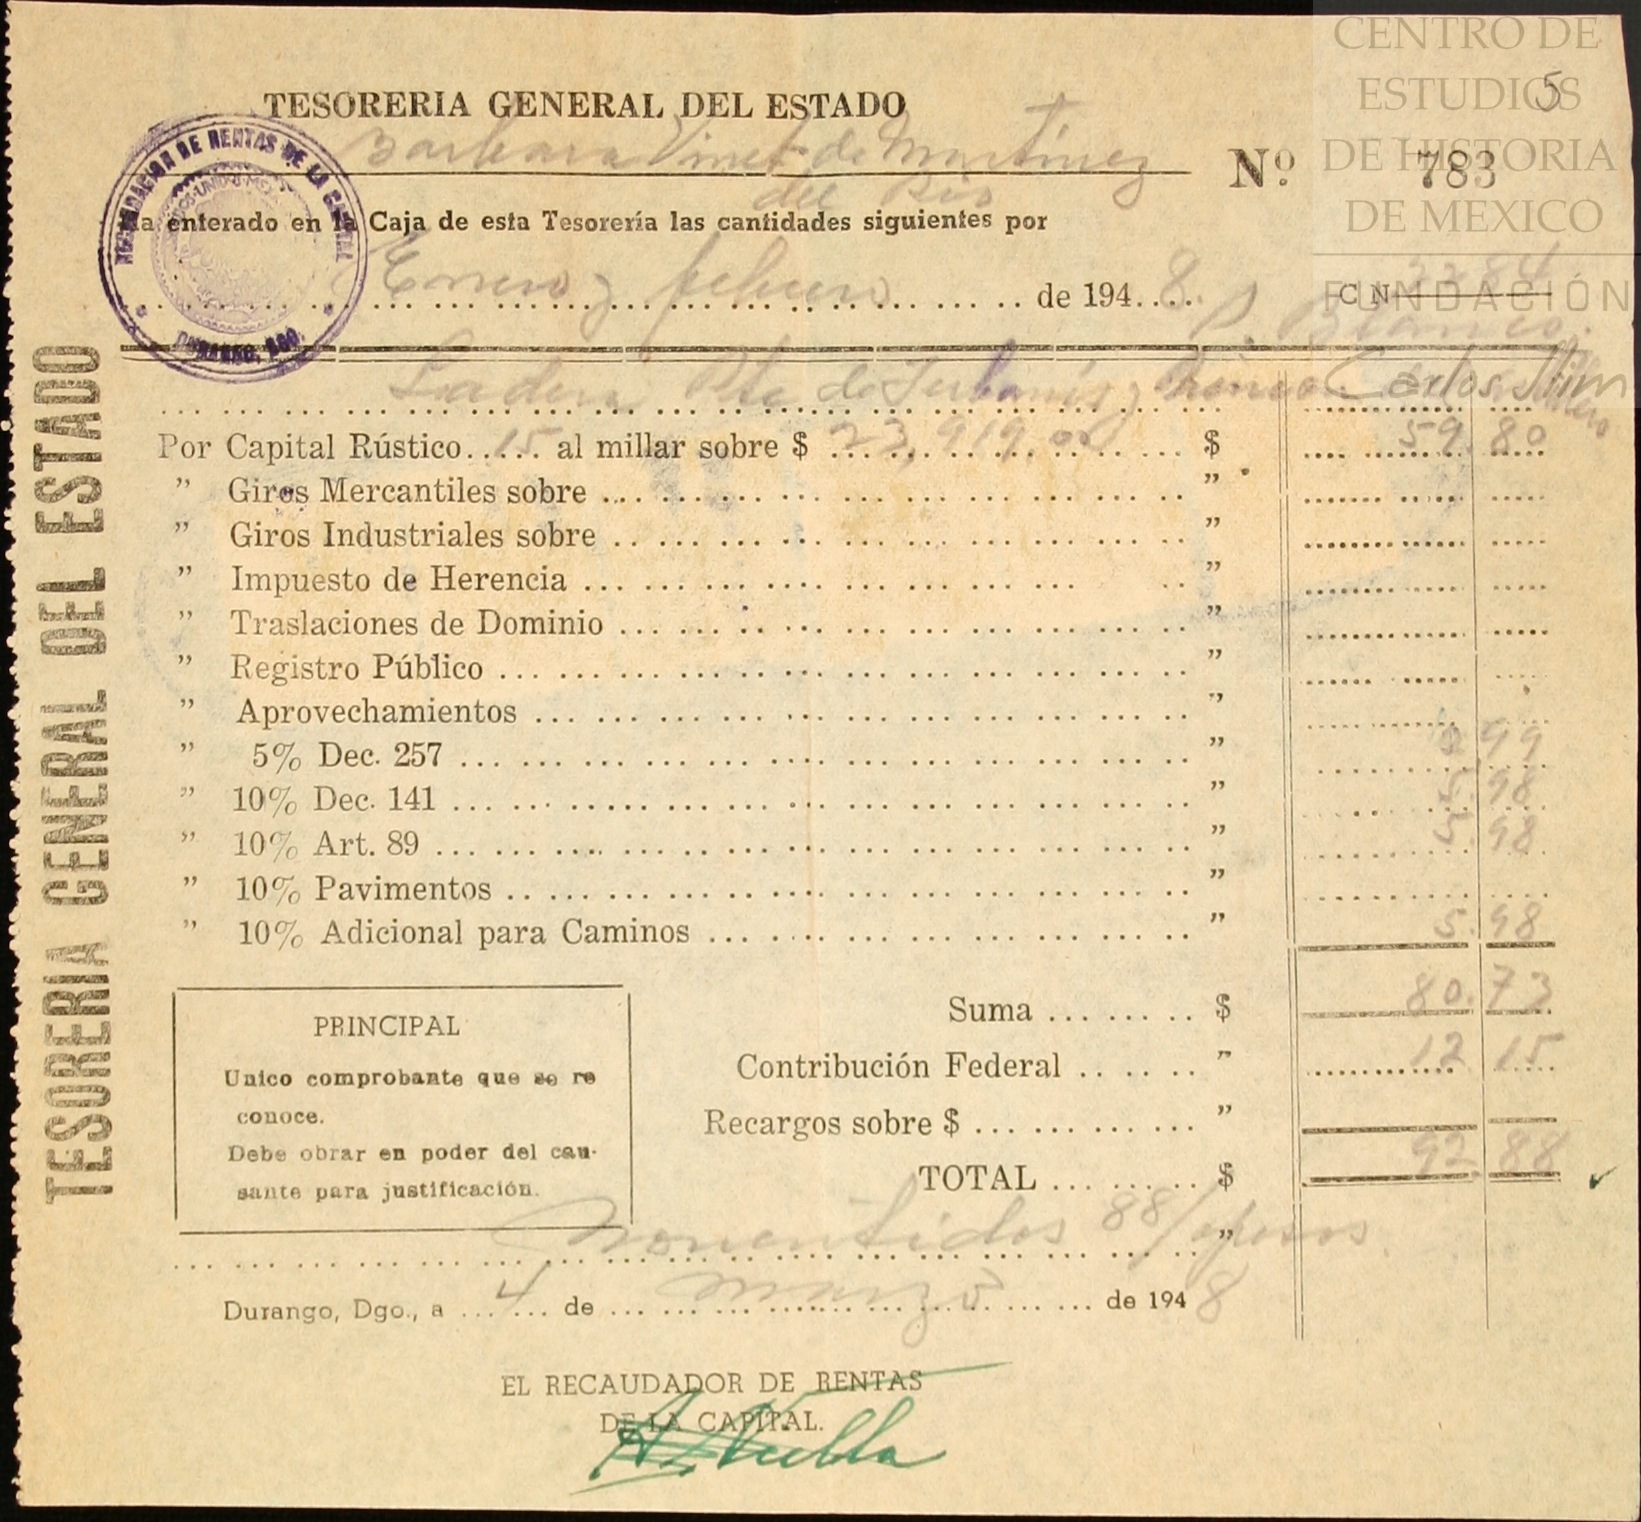 CENTRO DE
ESTUDIOS
DE HISTORIA
DE MEXICO
FUNDACIÓN
Carlos Slim
5
TESORERIA GENERAL DEL ESTADO
Barbara Vinet de Martinez
del Rio
Nº 783
Ha enterado en la Caja de esta Tesorería las cantidades siguientes por
Enero y febrero de 1948.
C N
RECAUDACION DE RENTAS DE LA CAPITAL
DURANGO, DGO.
P. Blanco.
Ladera Pte de
Por Capital Rústico 15 al millar sobre $ 23,919.00 $ 59.80
" Giros Mercantiles sobre "
" Giros Industriales sobre "
" Impuesto de Herencia "
" Traslaciones de Dominio "
" Registro Público "
" Aprovechamientos "
" 5% Dec. 257 " 2.99
" 10% Dec. 141 " 5.98
" 10% Art. 89 " 5.98
" 10% Pavimentos "
" 10% Adicional para Caminos " 5.98
Suma $ 80.73
Contribución Federal " 12 15
Recargos sobre $ "
TOTAL $ 92.88
PRINCIPAL
Unico comprobante que se re
conoce.
Debe obrar en poder del cau-
sante para justificación.
Noventidos 88/ pesos "
Durango, Dgo., a 4 de marzo de 1948
EL RECAUDADOR DE RENTAS
DE LA CAPITAL.
TESORERIA GENERAL DEL ESTADO